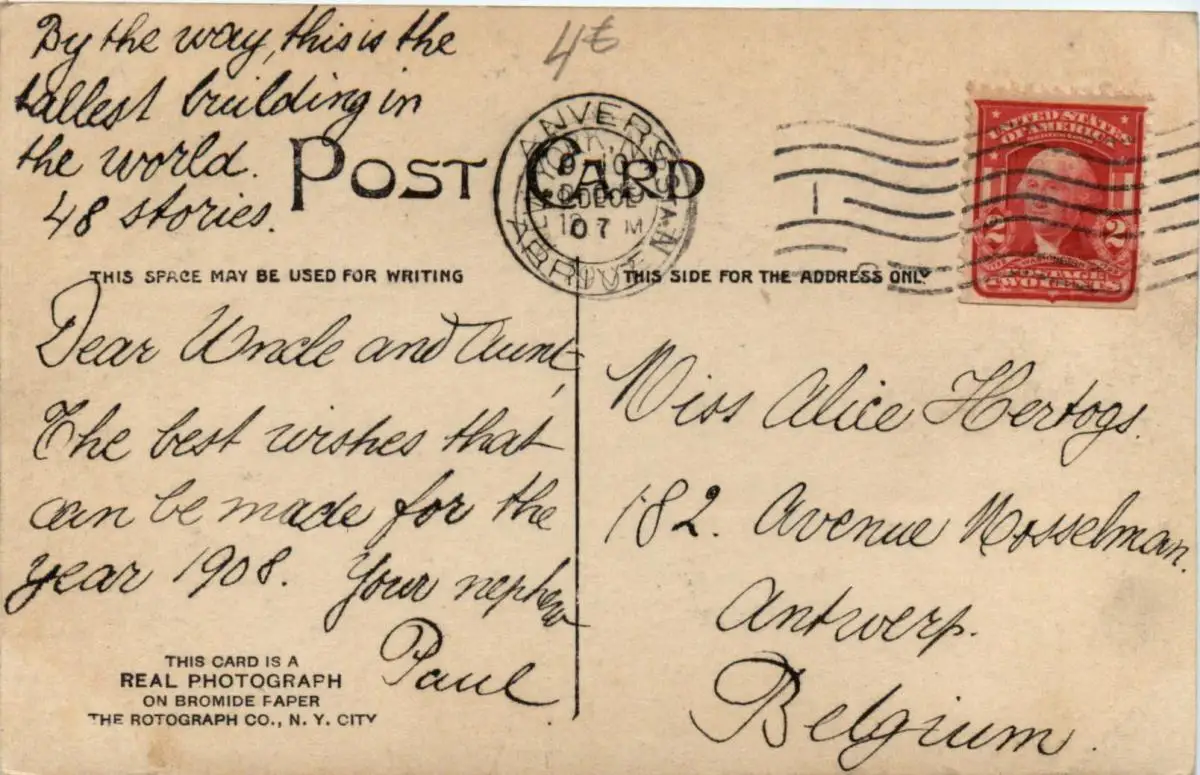 By the way, this is the
tallest building in
the world.
48 stories.
4¢
POST CARD
ANVERS
THIS SPACE MAY BE USED FOR WRITING
THIS SIDE FOR THE ADDRESS ONLY
UNITED STATES
OF AMERICA
2 2
Dear Uncle and Aunt,
The best wishes that
can be made for the
year 1908. Your nephew
Paul
Miss Alice Hertogs.
182. Avenue Mosselman.
Antwerp.
Belgium.
THIS CARD IS A
REAL PHOTOGRAPH
ON BROMIDE PAPER
THE ROTOGRAPH CO., N. Y. CITY